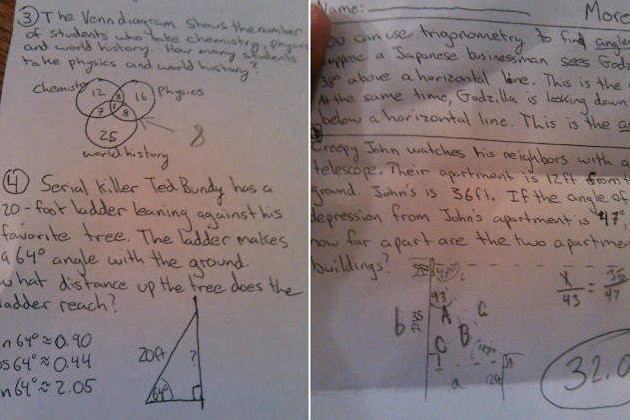 ③ The Venn diagram shows the number
of students who take chemistry, physics
and world history. How many students
take physics and world history?
chemistry
12
16
physics
7
8
25
world history
8
④ Serial killer Ted Bundy has a
20-foot ladder leaning against his
favorite tree. The ladder makes
a 64° angle with the ground.
what distance up the tree does the
ladder reach?
n 64° ≈ 0.90
os 64° ≈ 0.44
n 64° ≈ 2.05
20ft
?
64°
Name:
More
ou can use trigonometry to find angle
uppose a Japanese businessman sees Godz
above a horizontal line. This is the
At the same time, Godzilla is looking down
below a horizontal line. This is the
Creepy John watches his neighbors with a
telescope. Their apartment is 12ft from t
ground. John's is 36ft. If the angle of
depression from John's apartment is 47°,
how far apart are the two apartmen
buildings?
47°
43
b 35 ft
A
G
B
C
a
12ft
X/43 = 35/47
32.0